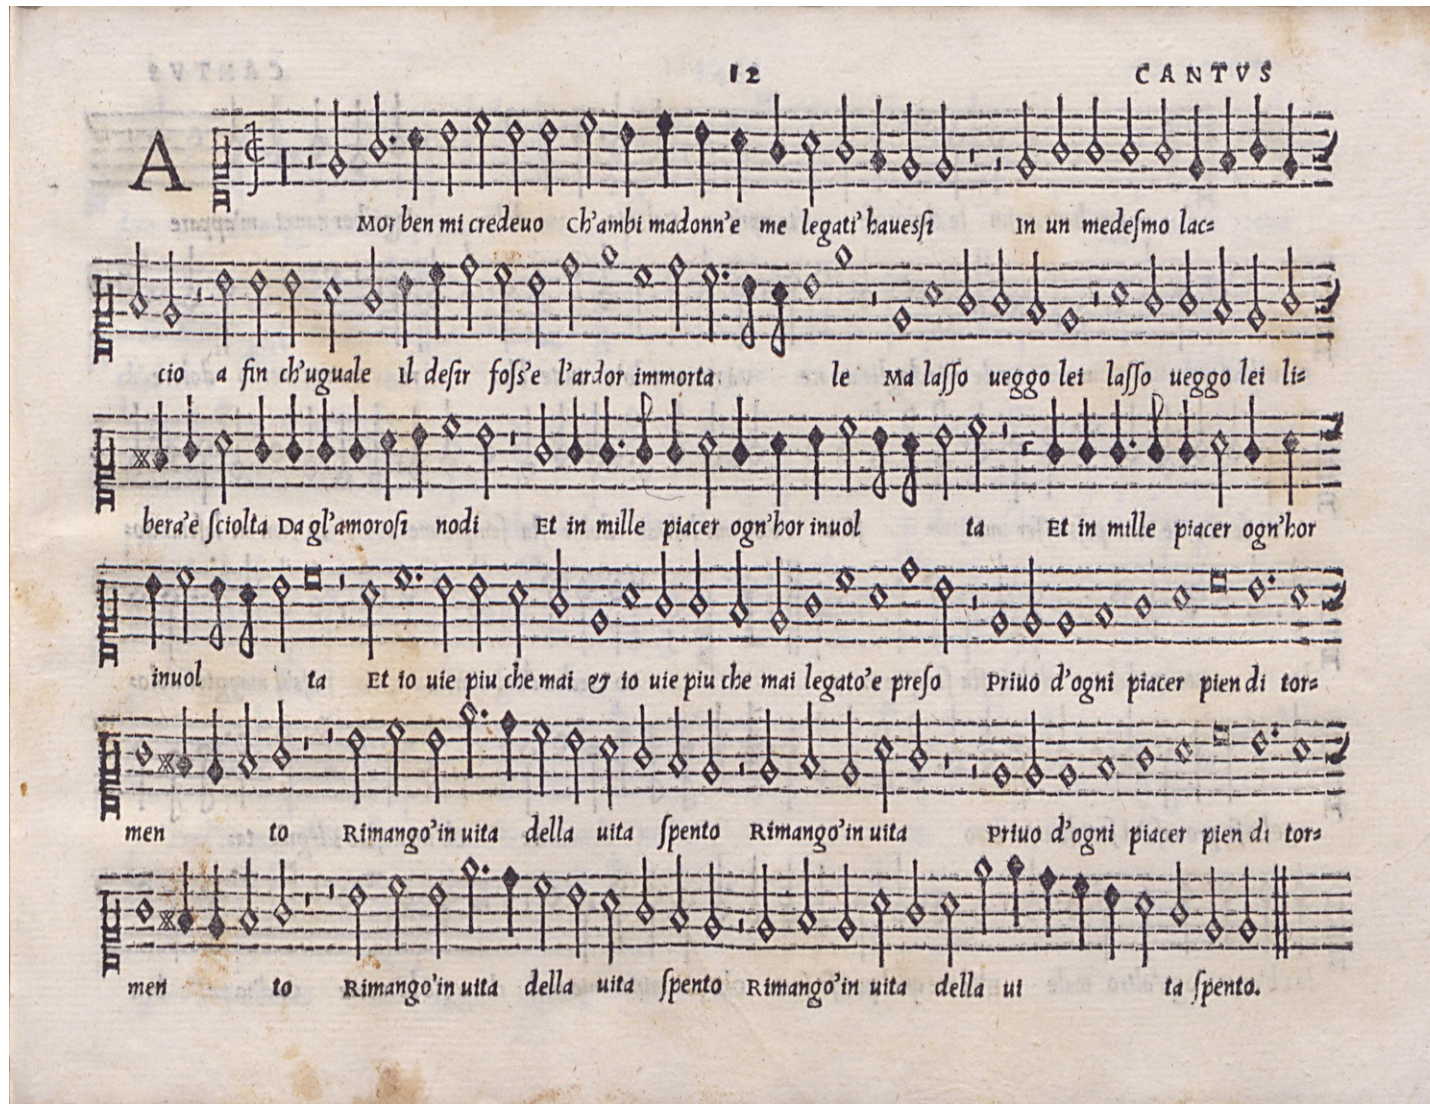 12 CANTVS
A Mor ben mi credeuo Ch'ambi madonn'e me legati' hauesſi In un medeſmo lac=
cio a fin ch'uguale Il deſir foſs'e l'ardor immorta le Ma laſſo ueggo lei laſſo ueggo lei li=
bera'e ſciolta Da gl'amoroſi nodi Et in mille piacer ogn'hor inuol ta Et in mille piacer ogn'hor
inuol ta Et io uie piu che mai & io uie piu che mai legato'e preſo Priuo d'ogni piacer pien di tor=
men to Rimango'in uita della uita ſpento Rimango'in uita Priuo d'ogni piacer pien di tor=
men to Rimango'in uita della uita ſpento Rimango'in uita della ui ta ſpento.